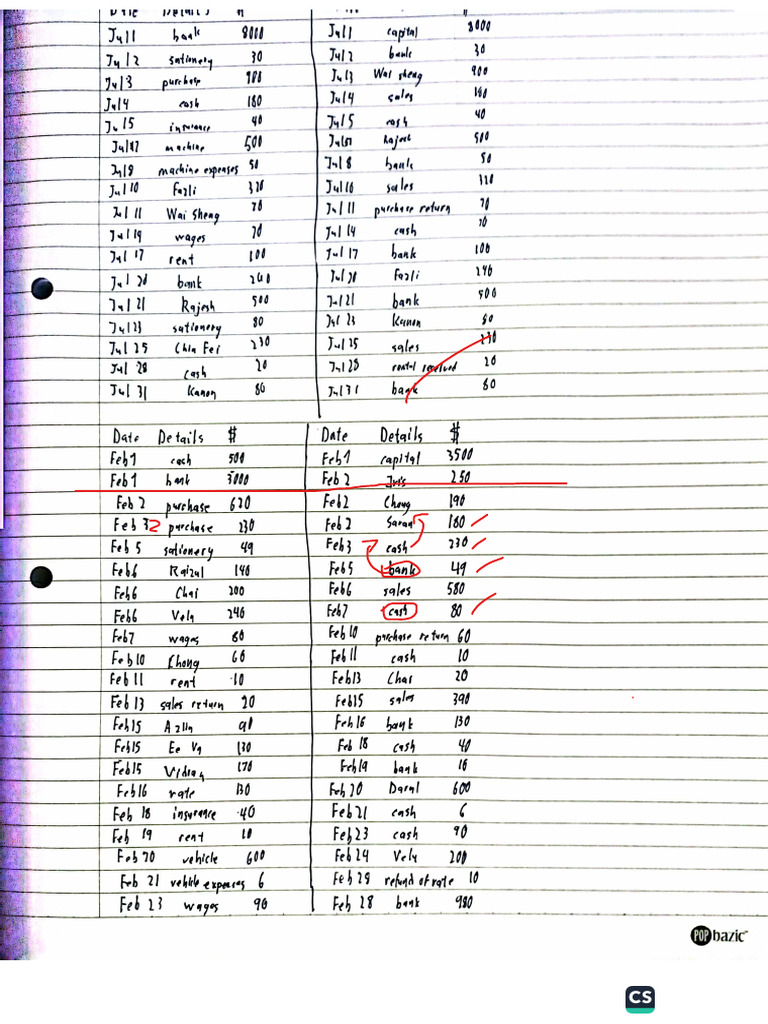 Date Details $
Jul 1 bank 8000 Jul 1 capital 8000
Jul 2 sationery 30 Jul 2 bank 30
Jul 3 purchase 900 Jul 3 Wai sheng 900
Jul 4 cash 180 Jul 4 sales 180
Jul 5 insurance 40 Jul 5 cash 40
Jul 7 machine 500 Jul 7 Rajesh 500
Jul 8 machine expenses 50 Jul 8 bank 50
Jul 10 Fazli 320 Jul 10 sales 320
Jul 11 Wai Sheng 70 Jul 11 purchase return 70
Jul 14 wages 70 Jul 14 cash 70
Jul 17 rent 100 Jul 17 bank 100
Jul 20 bank 240 Jul 20 Fazli 240
Jul 21 Rajesh 500 Jul 21 bank 500
Jul 23 sationery 80 Jul 23 Kanon 80
Jul 25 Chia Fei 230 Jul 25 sales 230
Jul 28 cash 20 Jul 28 rental received 20
Jul 31 Kanon 80 Jul 31 bank 80
Date Details $ Date Details $
Feb 1 cash 500 Feb 1 capital 3500
Feb 1 bank 3000 Feb 2 250
Feb 2 purchase 620 Feb 2 Chong 190
Feb 2 purchase 230 Feb 2 Saran 180
Feb 5 sationery 49 Feb 3 cash 230
Feb 6 Raizal 140 Feb 5 bank 49
Feb 6 Chai 200 Feb 6 sales 580
Feb 6 Vely 240 Feb 7 cash 80
Feb 7 wages 80 Feb 10 purchase return 60
Feb 10 Chong 60 Feb 11 cash 10
Feb 11 rent 10 Feb 13 Chai 20
Feb 13 sales return 20 Feb 15 sales 390
Feb 15 Azlin 90 Feb 16 bank 130
Feb 15 Ee Va 130 Feb 18 cash 40
Feb 15 170 Feb 19 bank 10
Feb 16 rate 130 Feb 20 Daral 600
Feb 18 insurance 40 Feb 21 cash 6
Feb 19 rent 10 Feb 23 cash 90
Feb 20 vehicle 600 Feb 24 Vely 200
Feb 21 vehicle expenses 6 Feb 29 refund of rate 10
Feb 23 wages 90 Feb 28 bank 980
POP bazic
CS